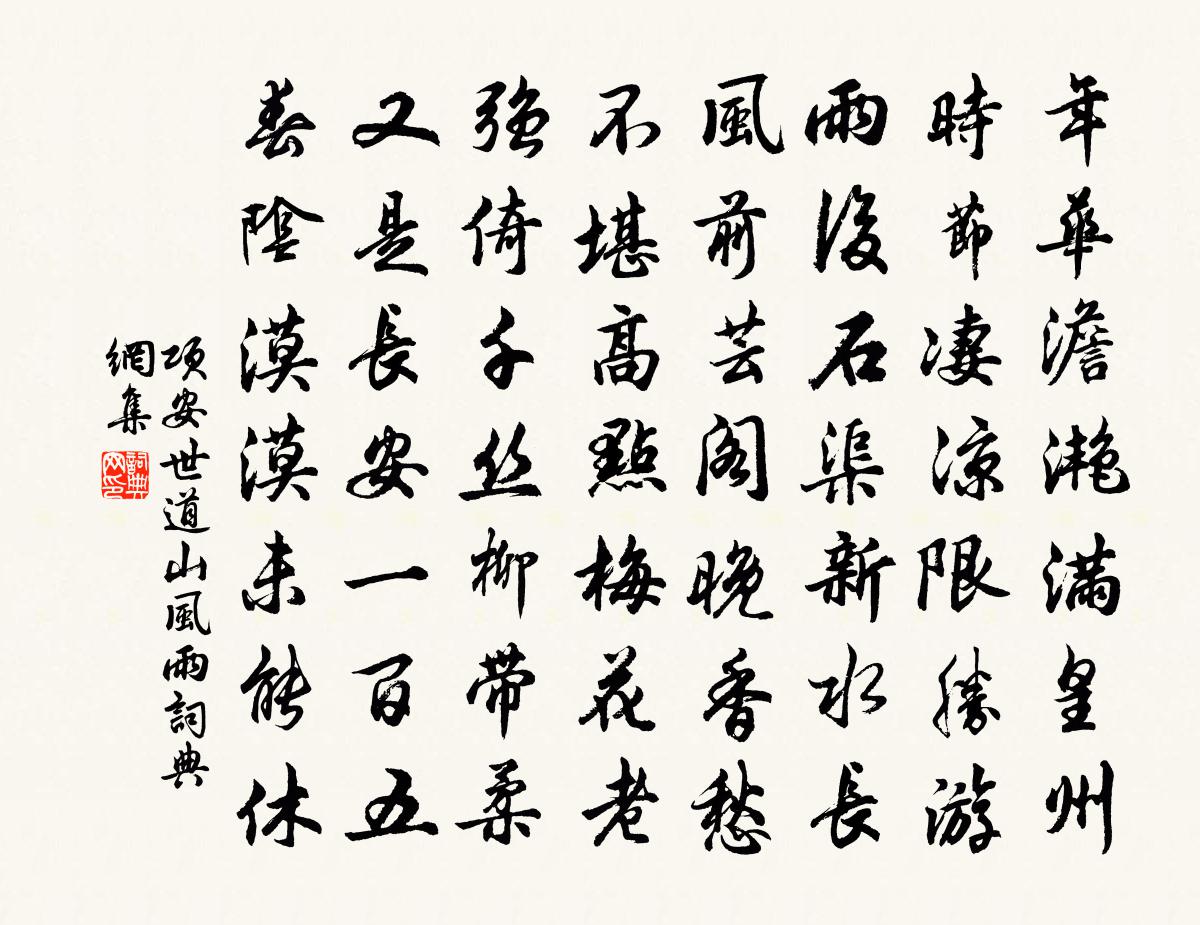 年華澹灧滿皇州
時節凄涼限勝游
雨後石渠新水長
風前芸閣晚香愁
不堪高點梅花老
強倚千絲柳帶柔
又是長安一百五
春陰漠漠未能休
項安世道山風雨詞典
網集
詞典
网印